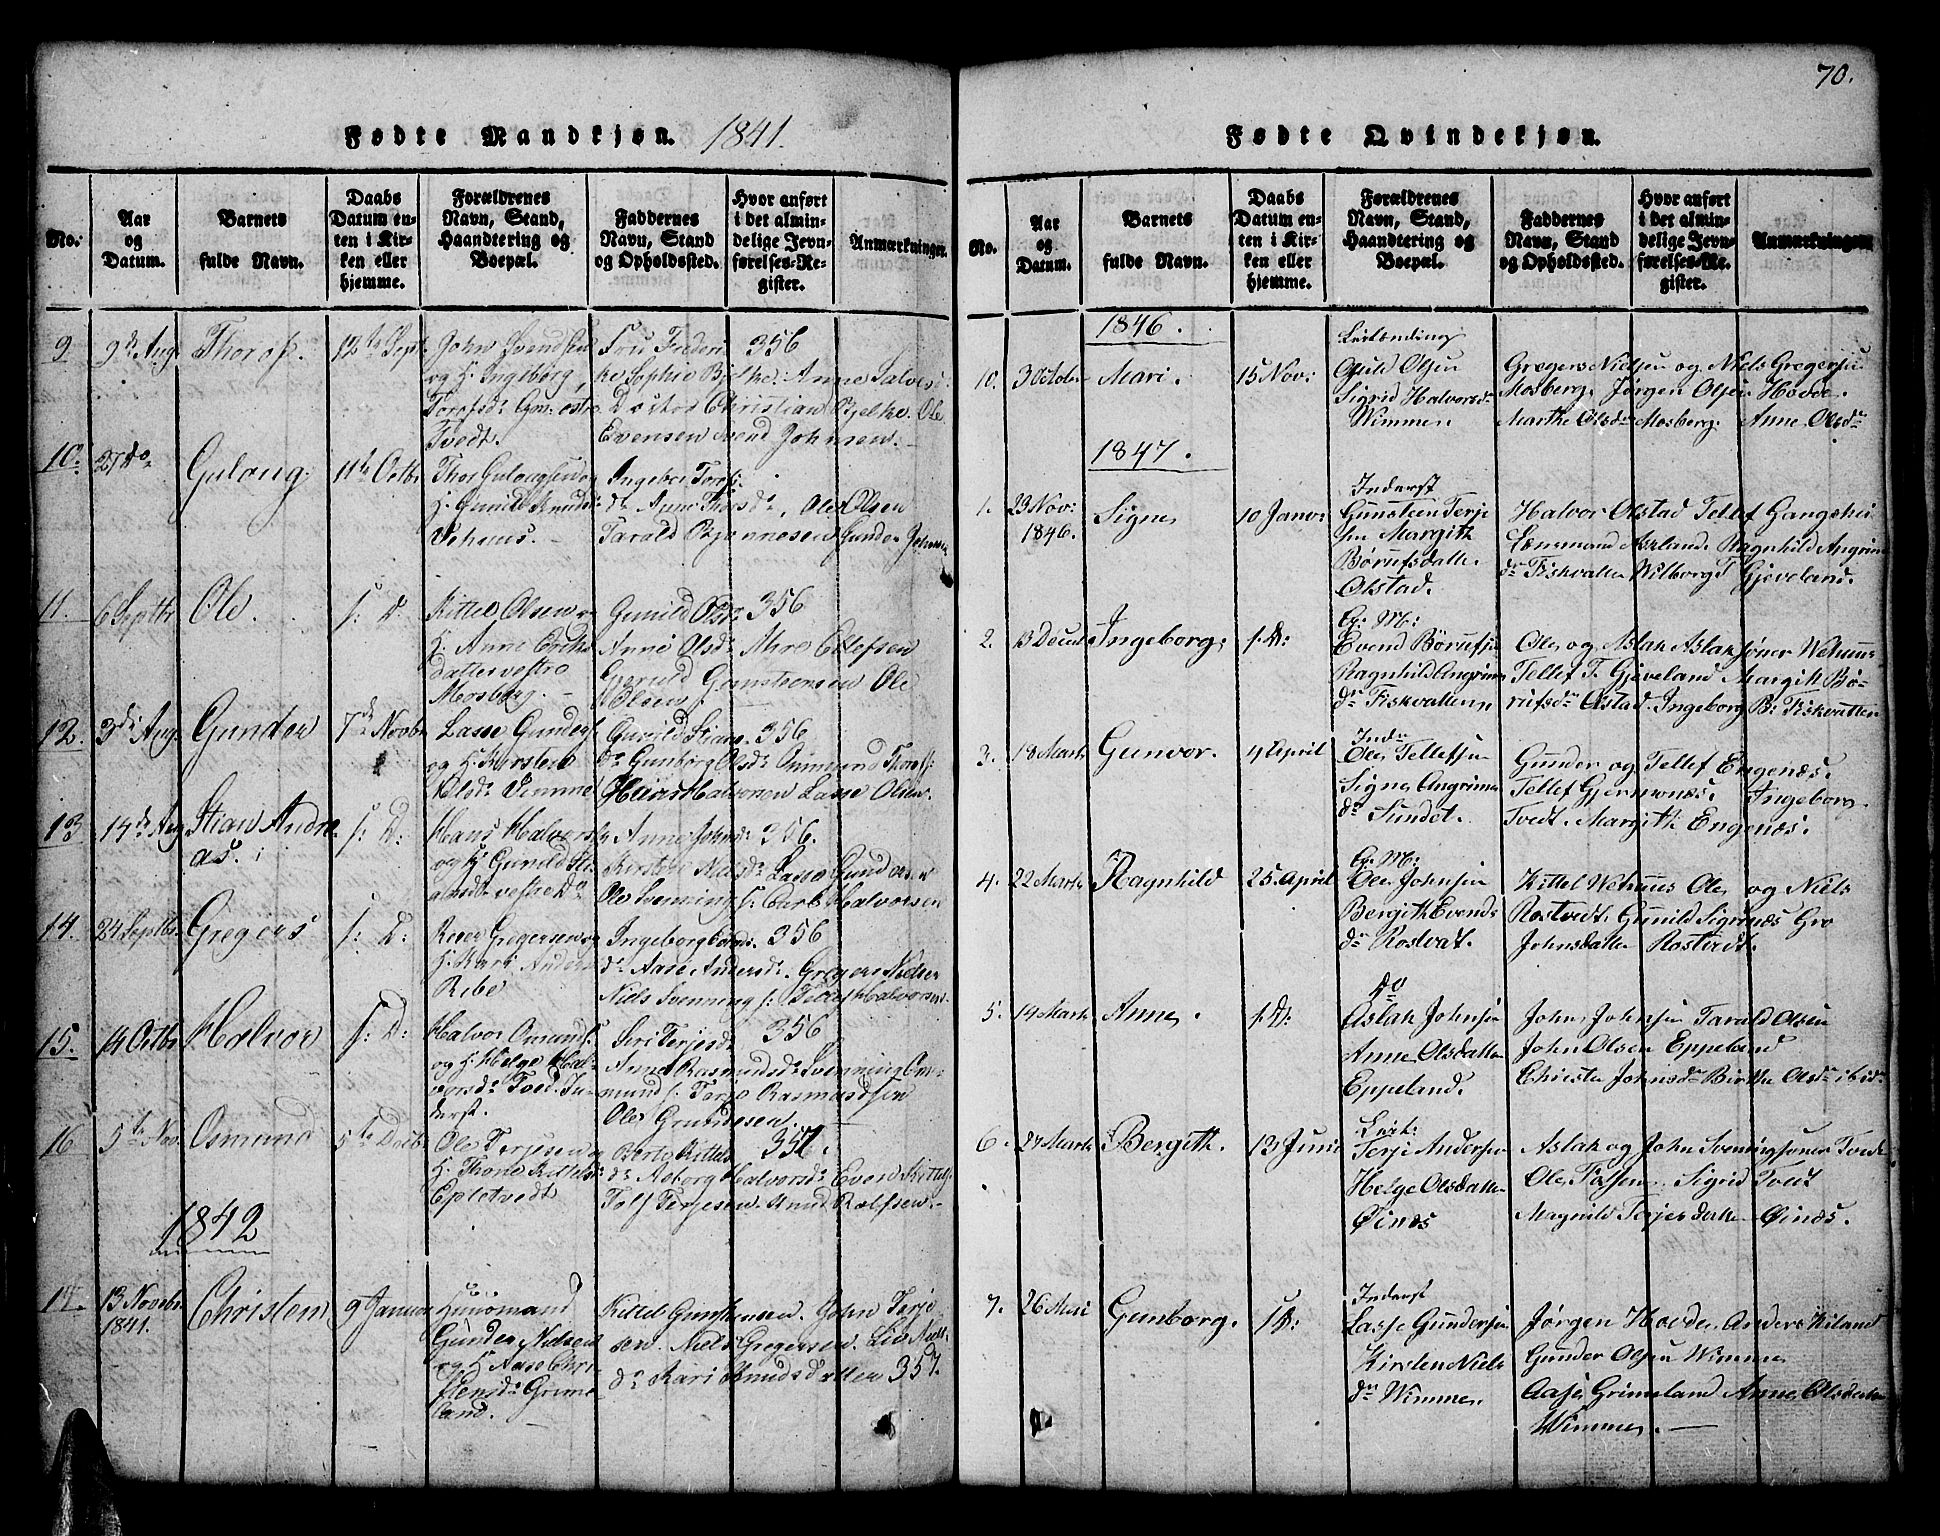 70.
Fødte Mandkjøn. 1841.
No.
Aar
og
Datum.
Barnets
fulde Navn.
Daabs
Datum en-
ten i Kir-
ken eller
hjemme.
Forældrenes
Navn, Stand,
Haandtering og
Boepæl.
Faddernes
Navn, Stand
og Opholdssted.
Hvor anført
i det almin-
delige Jevn-
førelses-Re-
gister.
Anmærkninger.
9
9de Aug
Thorof.
12te Sept.
John Svendsen
og H. Ingeborg
Torofsd:
Tvedt.
Fru Frederi 356
ke Sophie Bjelke. Anne Salves
Doctor Christian Bjelke. Ole
Evensen Svend Johnsen.
10.
27 do
Gulong.
11te Octbr
Thor Gulongsen og
H. Gunild Knuds
Vehuus.
Ingebor Torofs
dr Anne Thorsdr, Ole Olsen
Tarald Bjonnesen Gunder Johnsen
11.
6 Septbr
Ole.
f. D.
Kittel Olsen og
H. Anne
datter vestre
Mosberg.
Gunild Olsdr 356
Anne Olsdr Ellefsen
Gunstensen Ole
Olsen.
12
3di Aug
Gunder
7de Novbr
Lasse Gunders
og H. Kirsten
Olsdr Vimme
Gunild Stians 356
dr Gunborg Olsdr Thorof
Halvorsen Lasse Olsen.
13
14de Aug
Stian Andre
as.
f: D:
Hans Halvors
og H: Gunild Sti
ansdr vestre do
Anne Johnsdr 356.
Kirsten Nielsdr Lasse Gundersen
Ole Svenning f: Carl Halvorsen
14.
24 Septbr
Gregers
f: D:
Gregersen og
H. Kari Anders
Ribe
Ingeborg 356
dr Aase Andersdr. Gregers Nielsen
Niels Svenning f: Tellef Halvorsen
15.
14 Octbr
Halvor
f: D:
Halvor Omunds
og H. Helge Hal-
vorsdr Tved. In-
derst.
Siri Terjesdr 356
Anne Rasmusdr. Svenning Om-
mund f. Terje Rasmusdsen
Ole Gundesen.
16
5te Nov.
Osmund
5te Decbr
Ole Terjesen og
H. Thone Kittels
Epletvedt
Berte Kittels 357.
dr Aaborg Halvorsdr Even Kittels
Tolf Terjesen. Knud Rolfsen.
1842
17.
13 Novbr
1841.
Christen
9 Januar
Huusmand
Gunder Nielsen
og H. Aase Chri-
stensdr Grime-
land.
Kittel Gunstensen. John Terje
sen. Niels Gregersen. Liv Niels
dr Kari Knudsdatter 357.
Fødte Qvindekjøn.
No.
Aar
og
Datum.
Barnets
fulde Navn.
Daabs
Datum en-
ten i Kir-
ken eller
hjemme.
Forældrenes
Navn, Stand,
Haandtering og
Boepæl.
Faddernes
Navn, Stand
og Opholdssted.
Hvor anført
i det almin-
delige Jevn-
førelses-Re-
gister.
Anmærkninger
1846.
10.
3 October
Mari.
15 Nov:
Leilænding
Ould Olsen
Sigrid Halvorsdr
Wimme.
Gregers Nielsen og Niels Gregersen
Mosberg. Jørgen Olsen Hovde.
Marthe Olsdr Mosberg. Anne Olsdr
1847.
1.
23 Nov:
1846.
Signe
10 Janv:
Inderst
Gunsteen Terje
sen Margith
Børufsdatter
Olstad.
Halvor Olstad Tellef Gangshei
Lensmand Aasland. Ragnhild Angrim
dr Fiskvatten Wilborg T Gjeveland.
2.
13 Decbr
Ingeborg.
f. D:
Eg: M:
Evend Børufsen
Ragnhild Angrims
dr Fiskvatten
Ole og Aslak Aslaksøner Wehuus
Tellef T. Gjeveland Margith Bø-
rufsdr Olstad. Ingeborg B: Fiskvatten
3.
18 Marts
Gunvor.
4 April
Indr
Ole Tellefsen
Signe Angrims
dr Sundet.
Gunder og Tellef Engenæs.
Tellef Gjermonæs. Ingeborg
Tvedt. Margith Engenæs.
4.
22 Marts
Ragnhild
25 April
Eg: M:
Ole Johnsen
Bergith Evends
dr Rostvat.
Kittel Wehuus Ole og Niels
Rostvedt. Gunild Sigrinæs Gro
Johnsdatter Rostvedt.
5.
14 Marts
Anne.
f. D:
do
Aslak Johnsen
Anne Olsdatter
Eppeland.
John Johnsen Tarald Olsen
John Olsen Eppeland
Christe Johnsdr Birthe Olsdr ibid:
6.
27 Marts
Bergith.
13 Juni
Leil:
Terje Andersen
Helge Olsdatter
Øinæs
Aslak og John Sveningsøner Tvedt
Ole Sigrid Tvet
Magnild Terjesdatter Øinæs.
7.
26 Mai
Gunborg.
f. D:
Inderst
Lasse Gundersen
Kirsten Niels
dr Wimme.
Jørgen Hovde. Anders Kiland
Gunder Olsen Wimme
Aase Grimeland Anne Olsdatter
Wimme.